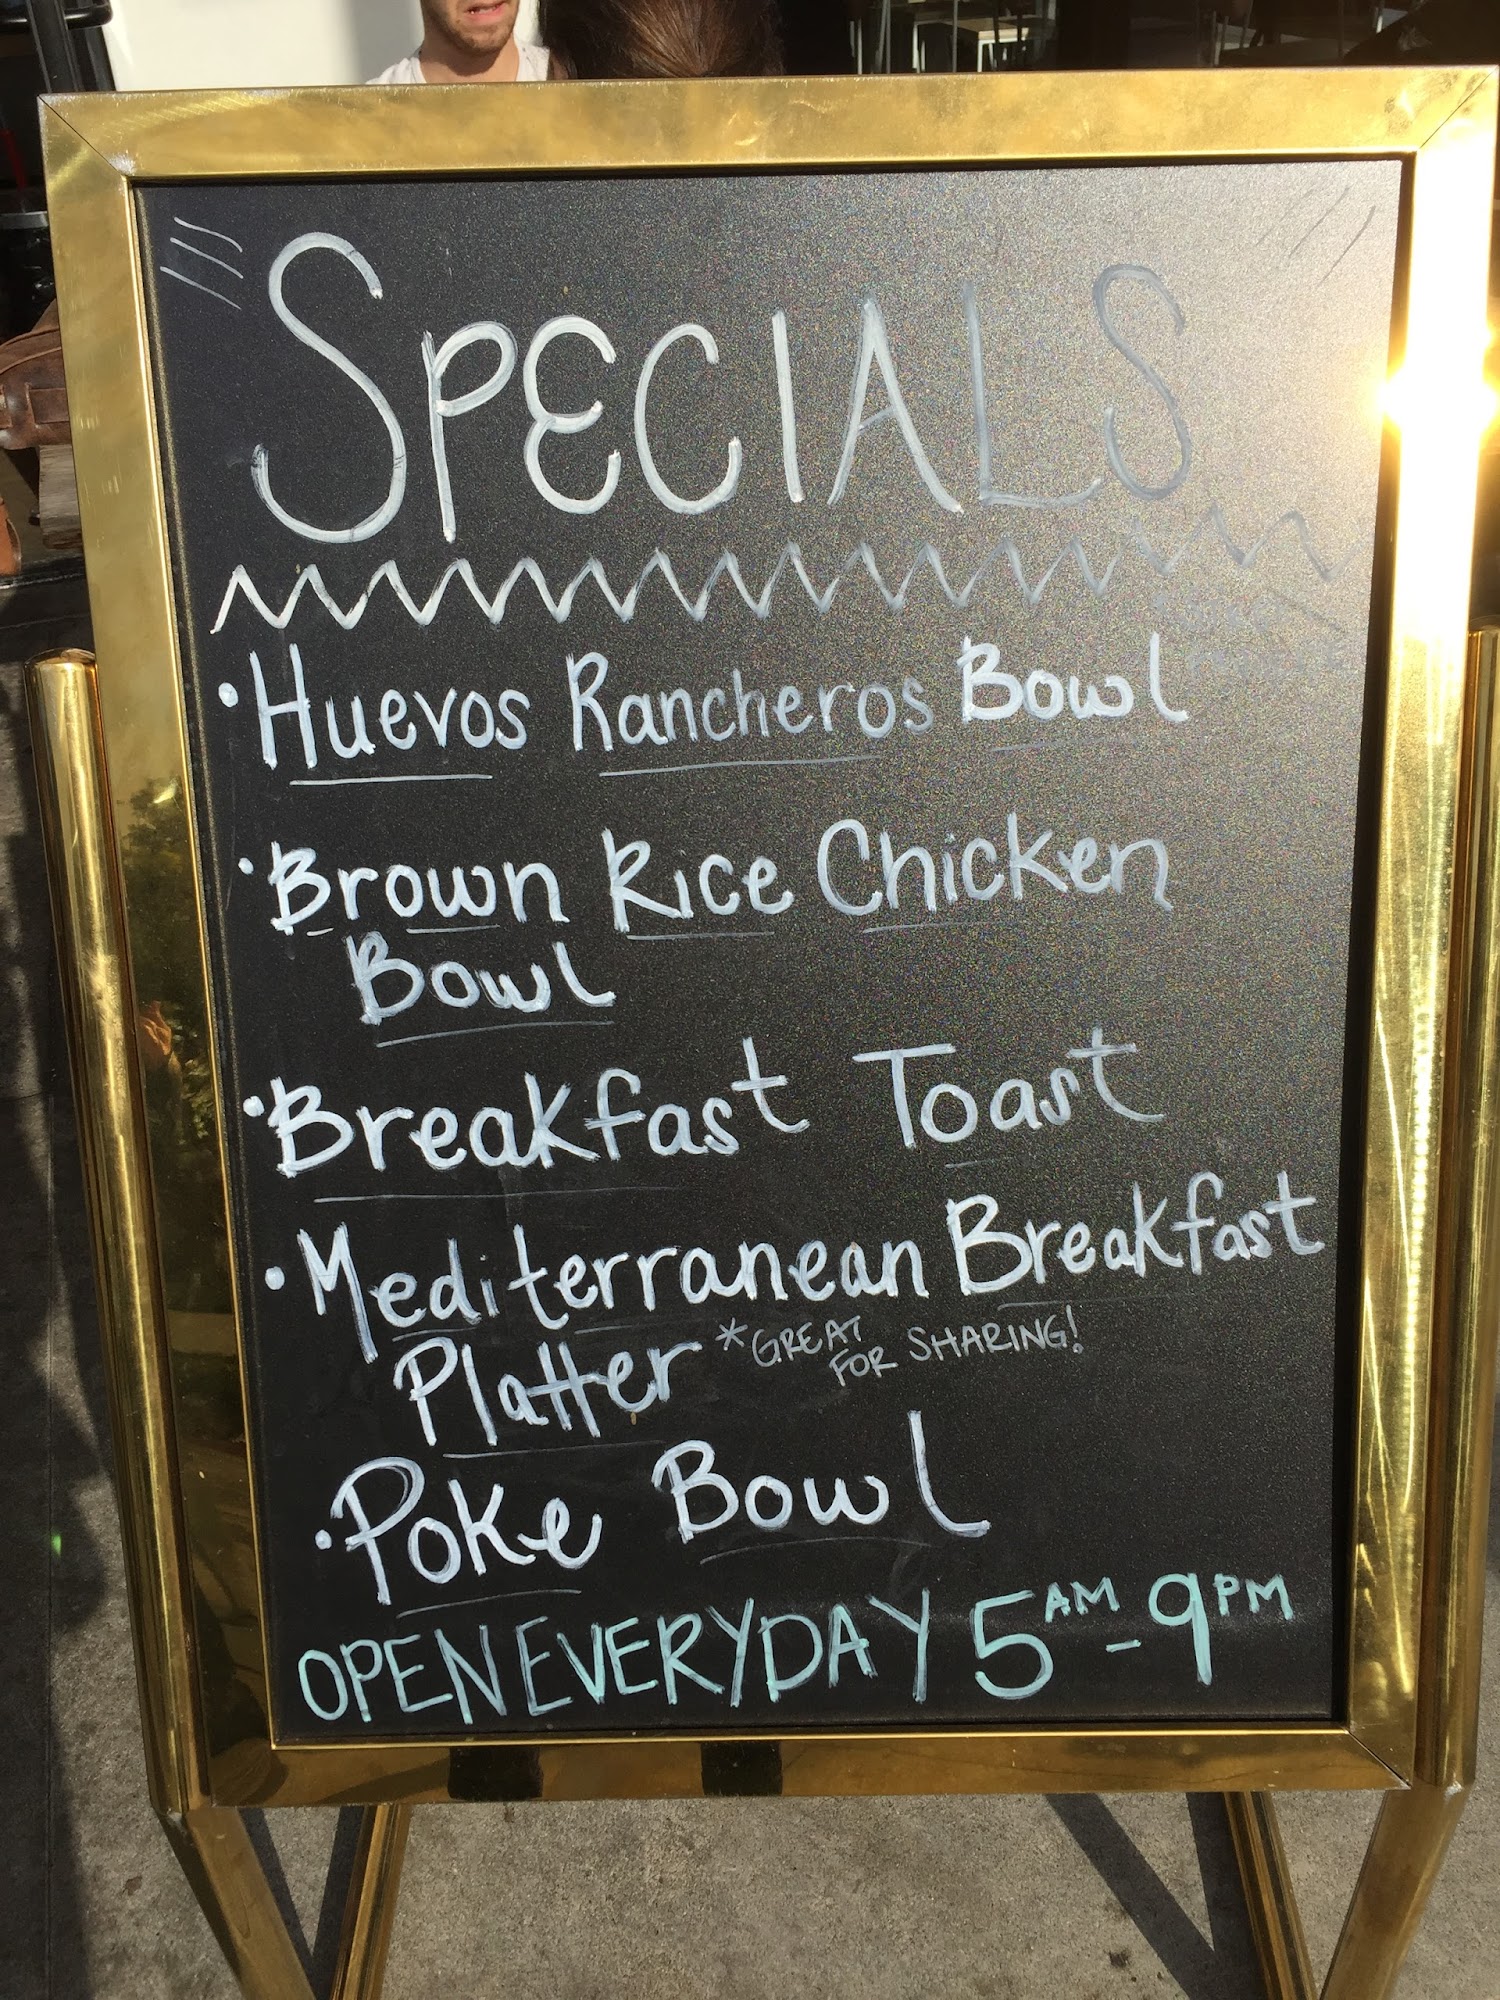 SPECIALS
• Huevos Rancheros Bowl
• Brown Rice Chicken
Bowl
• Breakfast Toast
• Mediterranean Breakfast
Platter *GREAT
FOR SHARING!
• Poke Bowl
OPEN EVERYDAY 5AM-9PM